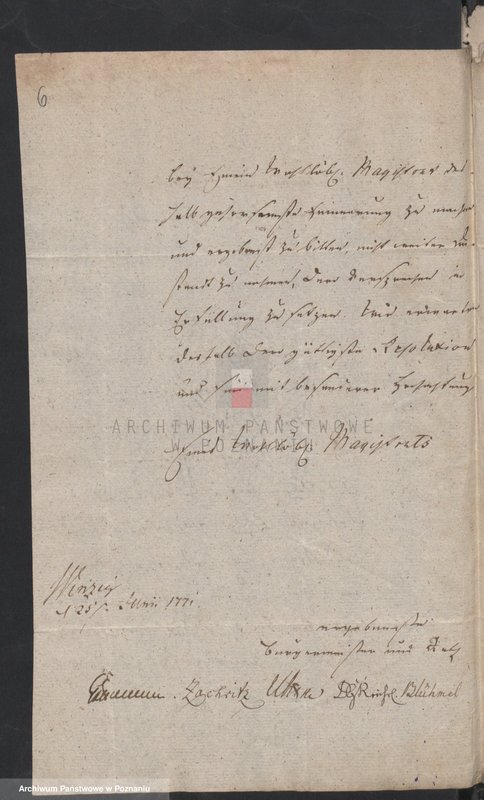 6
bey Einem Wohllöbl. Magistrat des-
halb gehorsamste Erinnerung zu machen
und ergebenst zu bitten, nicht weiter An-
stand zu nehmen, Dero Versprechen in
Erfüllung zu setzen. Wir erwarten
deshalb Dero gütigste Resolution
und sind mit besonderer Hochachtung
ARCHIWUM PAŃSTWOWE
W POZNANIU
Eines Wohllöbl. Magistrats
Winzig
d 25t. Junii 1771.
ergebenste
Bürgermeister und Rath
Zachritz Blühmel
Archiwum Państwowe w Poznaniu